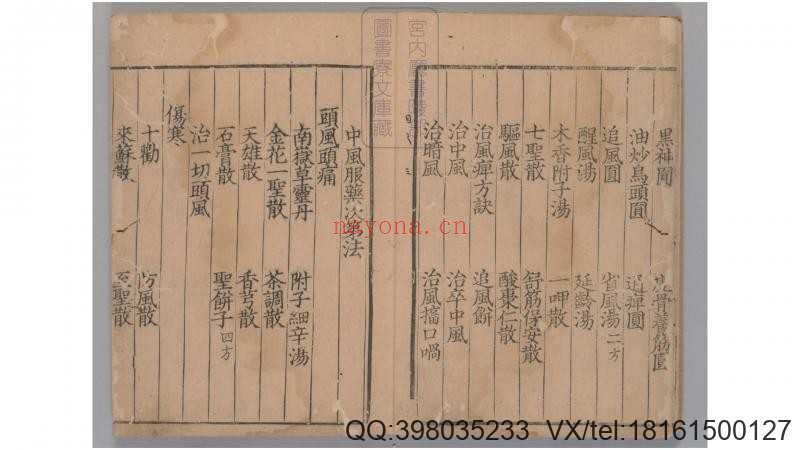 黑神圎 壯骨養筋圓
油炒烏頭圓 追痺圓
追風圓 省風湯二方
醒風湯 延齡湯
木香附子湯 一呷散
七聖散 舒筋保安散
驅風散 酸棗仁散
治風痺方訣 追風餅
治中風 治卒中風
治暗風 治風搐口喎
宮內廳書陵部
圖書寮文庫藏
中風服藥次第法
頭風頭痛
南嶽草靈丹 附子細辛湯
金花一聖散 茶調散
天雄散 香芎散
石膏散 聖餅子四方
治一切頭風
傷寒
十勸 防風散
來蘇散 至聖散
nayona.cn
QQ:398035233 VX/tel:18161500127